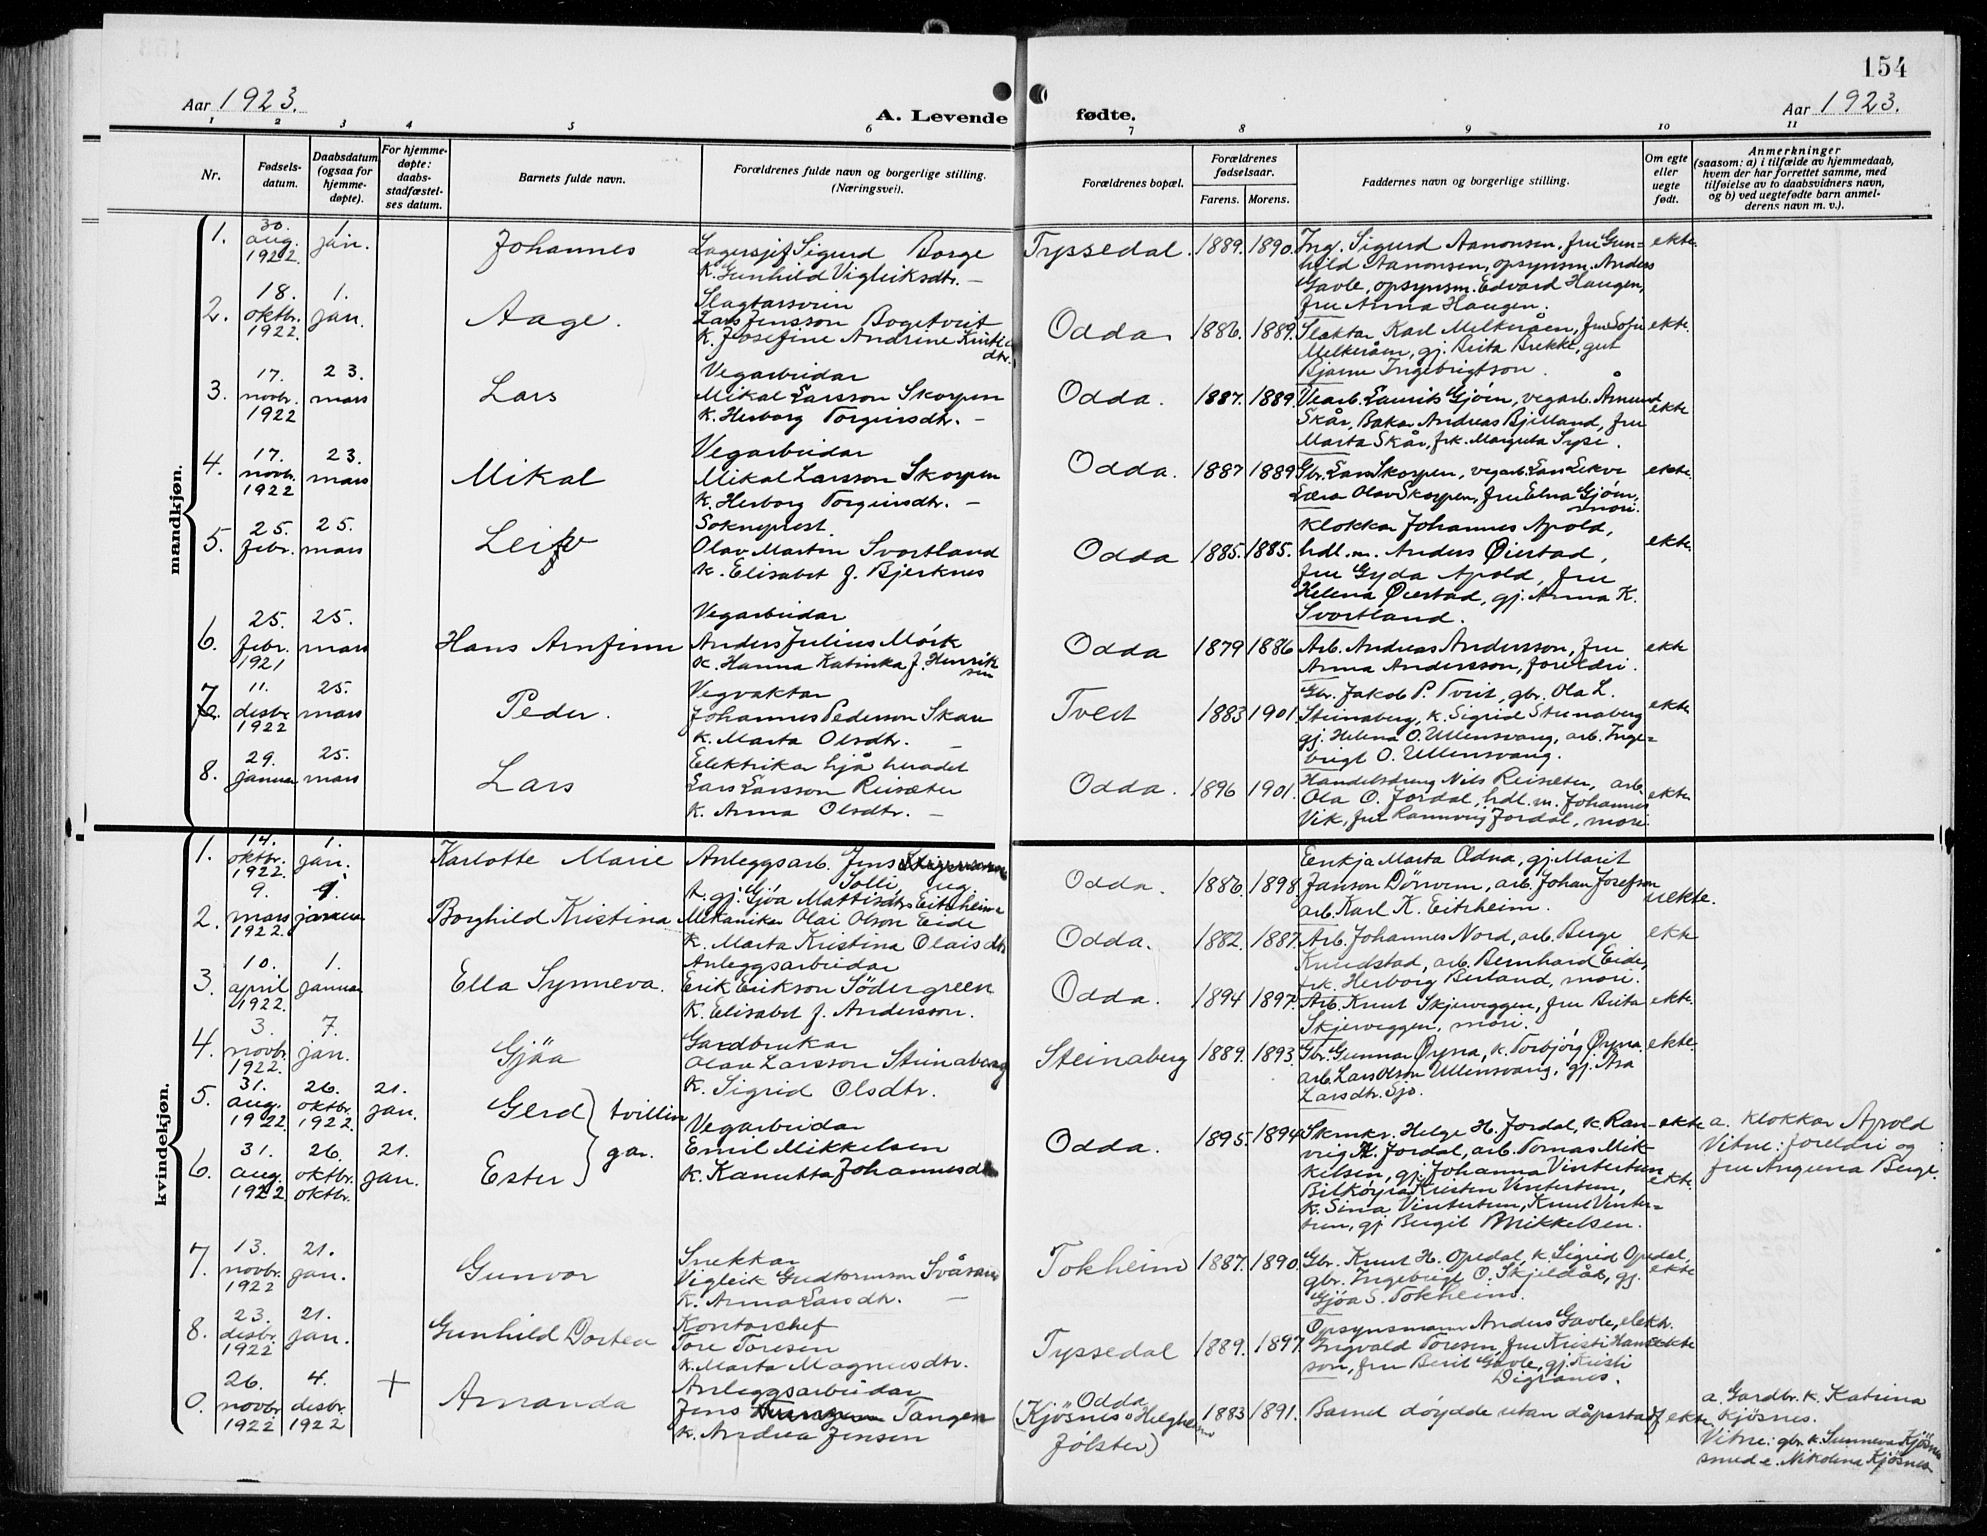 154
Aar 1923.
A. Levende fødte.
Aar 1923.
1 2 3 4 5 6 7 8 9 10 11
Nr.
Fødsels-
datum.
Daabsdatum
(ogsaa for
hjemme-
døpte).
For hjemme-
døpte:
daabs-
stadfæstel-
ses datum.
Barnets fulde navn.
Forældrenes fulde navn og borgerlige stilling.
(Næringsvei).
Forældrenes bopæl.
Forældrenes
fødselsaar.
Farens. Morens.
Faddernes navn og borgerlige stilling.
Om egte
eller
uegte
født.
Anmerkninger
(saasom: a) i tilfælde av hjemmedaab,
hvem der har forrettet samme, med
tilføielse av to daabsvidners navn,
og b) ved uegtefødte barn anmel-
derens navn m. v.).
mandkjøn.
1. 30. aug. 1922. 1. jan. Johannes
Lagersjef Sigurd Borge
K. Gunhild Vigleiksdtr. —
Tyssedal. 1889. 1890.
Ing. Sigurd Aanonsen, fru Gun=
hild Aanonsen, opsynsm. Anders
Gavle, opsynsm. Edvard Haugen,
fru Anna Haugen.
ekte.
2. 18. oktbr. 1922. 1. jan. Aage.
Slagtarsvein
Lars Jensson Bogetveit
K. Josefine Andrine
dtr.
Odda 1886. 1889.
Slaktar Karl Melkeråen, fru Sofie
Melkeråen, gj. Brita Brekke, gut
Bjarne Ingebrigtson.
ekte.
3. 17. novbr. 1922 23. mars Lars
Vegarbeidar
Mikal Larsson Skorpen
K. Herborg Torgeirsdtr. —
Odda. 1887. 1889.
Vearb. Laurits Gjøen, vegarb. Åmund
Skår, Bakar Andreas Bjelland, fru
Marta Skår, frk. Margreta Sysi.
ekte
4. 17. novbr. 1922 23. mars Mikal
Vegarbeidar
Mikal Larsson Skorpen
K. Herborg Torgeirsdtr. —
Odda. 1887 1889
Gbr. Lars Skorpen, vegarb. Lars Lekve
Lærar Olav Skorpen, fru Elna Gjøen,
mori.
ekte
5. 25. febr. 25. mars Leif
Sokneprest
Olav Martin Svortland
K. Elisabet f. Bjerknes
Odda 1885. 1885.
Klokkar Johannes Apold,
hdl.m. Anders Øierstad,
fru Gyda Apold, fru
Helena Øierstad, gj. Anna K.
Svortland.
ekte.
6. 25. febr. 1921 25. mars Hans Arnfinn
Vegarbeidar
Anders Julius Mørk
K. Hanna Katinka f. Henrik
sen
Odda 1879 1886
Arb. Andreas Andersson, fru
Anna Andersson, foreldri.
ekte
7. 11. desbr. 1922 25. mars Peder.
Vegvaktar
Johannes Pederson Skare
K. Marta Olsdtr. —
Tveit 1883 1901
Gbr. Jakob P. Tveit, gbr. Ola L.
Steinaberg, K. Sigrid Steinaberg
gj. Helena O. Ullensvang, arb. Inge=
brigt O. Ullensvang.
ekte
8. 29. januar 25. mars Lars
Elektrikar hjå heradet
Lars Larsson Reisæter
K. Anna Olsdtr. —
Odda. 1896 1901.
Handelsdreng Nils Reisæter, arb.
Ola O. Jordal, hdl.m. Johannes
Vik, fru Rannveig Jordal, mori.
ekte
kvindekjøn.
1. 14. oktbr. 1922. 1. jan. Karlotte Marie
Anleggsarb. Jens
Solli, ug.
K. gj. Gjøa Mattisdtr. Eitrheim
Odda. 1886. 1898
Enkja Marta Ødna, gj. Marit
Janson Dønvem, arb. Johan Josefson
arb. Karl K. Eitrheim.
uekte.
2. 9. mars 1922. 1. januar Borghild Kristina
Mekaniker Olai Olson Eide
K. Marta Kristina Olaisdtr
Odda. 1882. 1887.
Arb. Johannes Nord, arb. Berge
Knudstad, arb. Bernhard Eide,
frk. Herborg Berland, mori.
ekte
3. 10. april 1922. 1. januar Ella Synneva.
Anleggsarbeidar
Erik Erikson Södergreen
K. Elisabet f. Andersson.
Odda. 1894 1897.
Arb. Knut Skjerveggen, fru Brita
Skjerveggen, mori.
ekte.
4. 3. novbr. 1922. 7. jan. Gjøa
Gardbrukar
Olav Larsson Steinaberg
K. Sigrid Olsdtr.
Steinaberg 1889. 1893.
Gbr. Gunnar Øyna, K. Torbjørg Øyna
arb. Lars Olson Ullensvang, gj. Åsa
Larsdtr. Sjo.
ekte.
5. 31. aug. 1922 26. oktbr. 1922. 21. jan. Gerd } tvillin
6. 31. aug. 1922 26. oktbr. oktbr. 21. jan. Ester } gar.
Vegarbeidar
Emil Mikkelsen
K. Kanutta Johannesdtr
Odda. 1895. 1894
Skrukr. Helge H. Jordal, K. Ran-
vrig H. Jordal, arb. Tomas Mik
kelsen, gj. Johanna Vintertun
Bilkøyrar Kristen Vintertun,
K. Sina Vintertun, Knut Vinter=
tun, gj Bergit Mikkelsen.
ekte
ekte.
a. Klokkar Apold
Vitne: foreldri og
fru Angerna Berge.
7. 13. novbr. 1922 21. jan. Gunvor
Snekkar
Vigleik Gudtormson Svåsand
K. Anna Larsdtr. —
Tokheim 1887. 1890.
Gbr. Knut H. Opedal, K. Sigrid Opedal,
gbr. Ingebrigt O. Skjeldås, gj.
Gjøa S. Tokheim.
ekte
8. 23. desbr. 1922 21. jan. Gunhild Dortea
Kontorchef
Tore Toresen
K. Marta Magnusdtr.
Tyssedal 1889. 1897
Opsynsmann Anders Gavle, elektr.
Ingvald Toresen, fru Kristi Han
son, fru Berit Gavle, gj. Kristi
Digranes.
ekte
0. 26. novbr 1922 4. desbr. 1922 + Amanda
Anleggsarbeidar
Jens Tangen
K. Andrea Jensen
Odda
(Kjösnes i Helgheim
Jølster)
1883 1891.
Barnet døydde utan dåpstadf.
ekte
a. Gardbr. K. Katrina
Kjøsnes.
Vitne: gbr. K. Sunneva Kjøsnes
smed e. Nikolina Kjøsnes